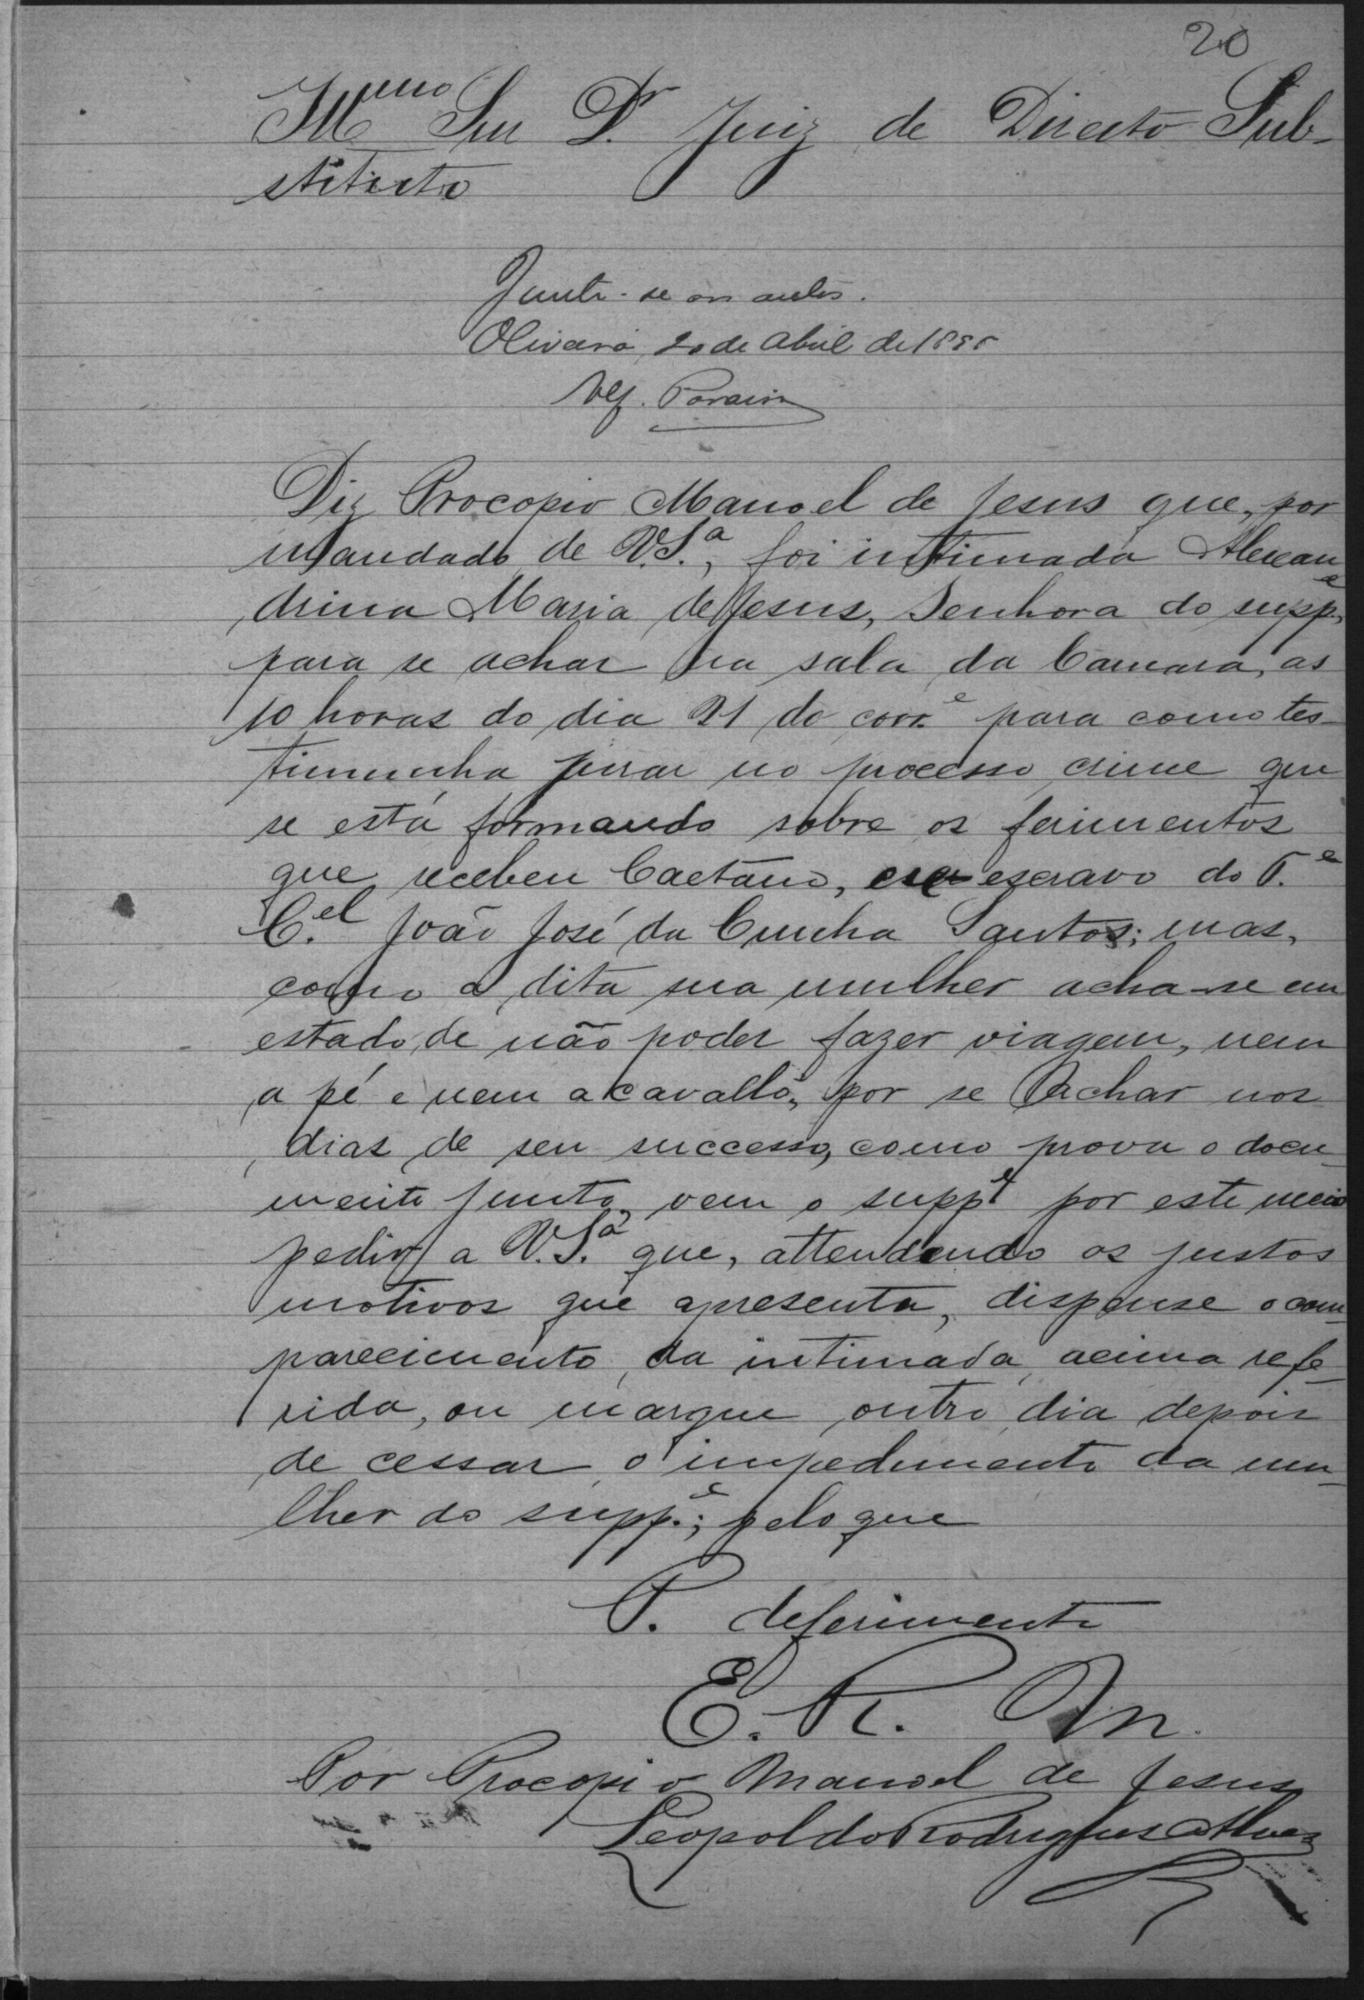 20
Illmo Snr Dr. Juiz de Direito Sub-
stituto
Junte-se aos autos.
Oliveira, 20 de Abril de 188
Diz Procopio Manoel de Jesus que, por
mandado de V.S.ª, foi intimada Alexan
drina Maria de Jesus, Senhora do supp.e,
para se achar na sala da Camara, as
10 horas do dia 21 do corr.e para como tes-
timunha jurar no processo crime que
se está formando sobre os ferimentos
que recebeu Caetano, escravo do T.e
C.el João José da Cunha Santos; mas,
como a dita sua mulher acha-se em
estado de não poder fazer viagem, nem
a pé e nem a cavallo, por se achar nos
dias de seu successo, como prova o docu-
mento junto, vem o supp.e por este meio
pedir a V.S.ª que, attendendo os justos
motivos que apresenta, dispense o com-
parecimento da intimada acima refe-
rida, ou marque outro dia depois
de cessar o impedimento da mu-
lher do supp.e; pelo que
P. deferimento
E. R. M.
Por Procopio Manoel de Jesus
Leopoldo Rodrigues Alves